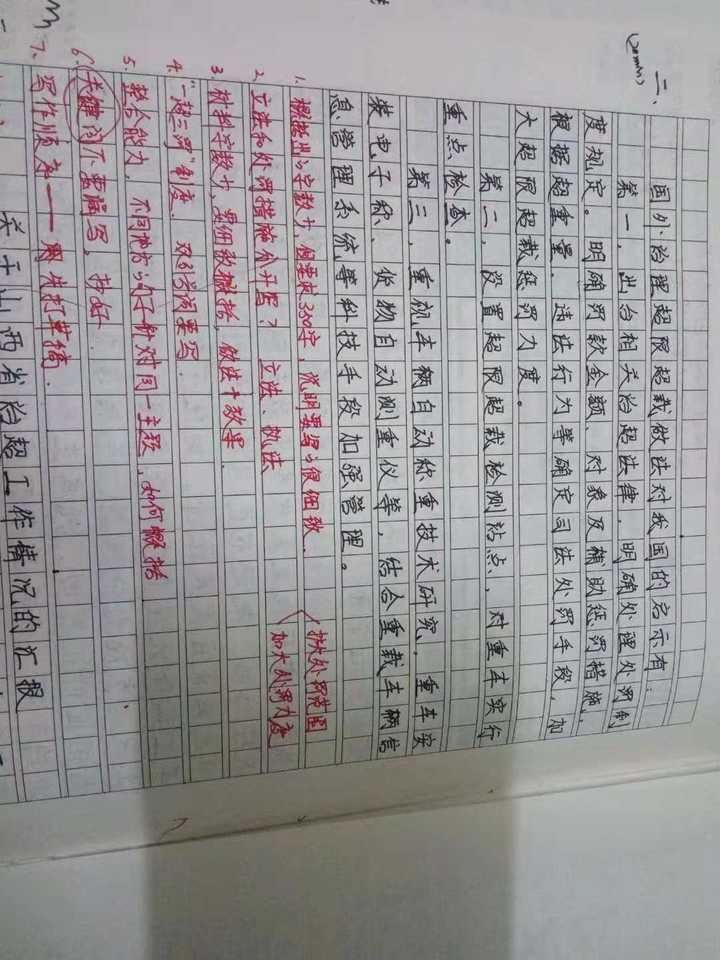 二、
(20min)
国外治理超限超载做法对我国的启示有：
第一，出台相关治超法律，明确处理处罚制
度规定。明确罚款金额、对象及辅助惩罚措施，
根据超重量、违法行为等确定司法处罚手段，加
大超限超载惩罚力度。
第二，设置超限超载检测站点，对重车实行
重点检查。
第三，重视车辆自动称重技术研究，重车安
装电子称、货物自动测重仪等，结合重载车辆信
息管理系统等科技手段加强管理。
1. 概括的字数少，但要求350字，说明要写的很细致.
扩大处罚范围
加大处罚力度
2. 立法和处罚措施分开写？ 立法、执法
3. 材料字数少，要细致概括，做法+效果.
4. "一超三罚"制度. 双引号词要写.
5. 整合能力. 不同地方的句子针对同一主题，如何概括
6. 关键词不要漏写，抄好.
7. 写作顺序——用先打草稿.
关于山西省治超工作情况的汇报